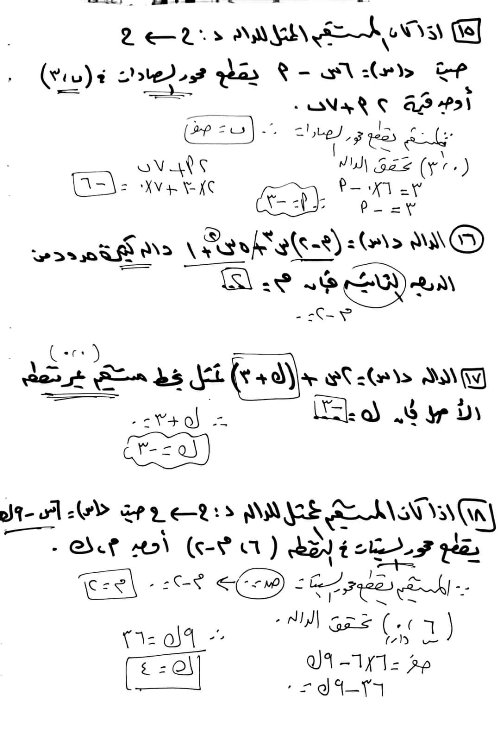 ١٥ اذا كان المستقيم الممثل للداله د : ح ← ح
حيث د(س) = ٦س - ٢ يقطع محور الصادات فى (ن ، ٣)
أوجد قيمة ٢ م + ٧ ن .
∵ المستقيم يقطع محور الصادات ∴ ن = صفر
(٣،٠) تحقق الداله
٣ = ٦×٠ - م
٣ = - م
∴ م = -٣
٢ م + ٧ ن
٢×-٣ + ٧×٠ = -٦
١٦ الداله د(س) = (م-٢)س٣ + ٥س٢ + ١ داله كثيرة حدود من
الدرجه الثانيه فإن م = ٢
م - ٢ = ٠
١٧ الداله د(س) = ٢س + (ك+٣) تمثل بخط مستقيم يمر بنقطه (٠،٠)
الأصل فإن ك = -٣
∴ ك + ٣ = ٠
ك = -٣
١٨ اذا كان المستقيم يمثل للداله د : ح ← ح حيث د(س) = ٦س - ٩ك
يقطع محور السينات فى النقطه (٦ ، م-٢) أوجد م ، ك .
∵ المستقيم يقطع محور السينات ص=٠ ← م - ٢ = ٠ م = ٢
(٦ ، ٠) تحقق الداله .
س د(س)
صفر = ٦×٦ - ٩ك
٣٦ - ٩ك = ٠
∴ ٩ك = ٣٦
ك = ٤